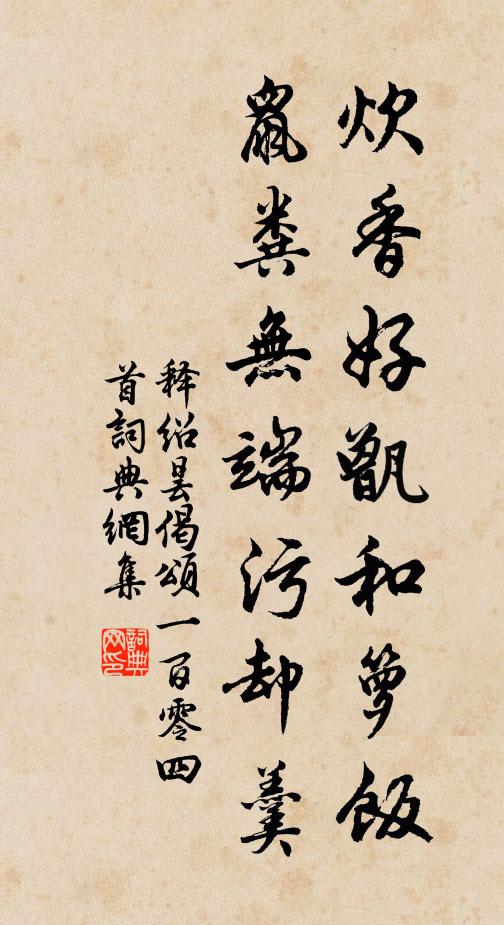 炊香好甑和箩飯
鼠糞無端污却羹
释紹曇偈頌一百零四
首詞典網集
詞典
网印